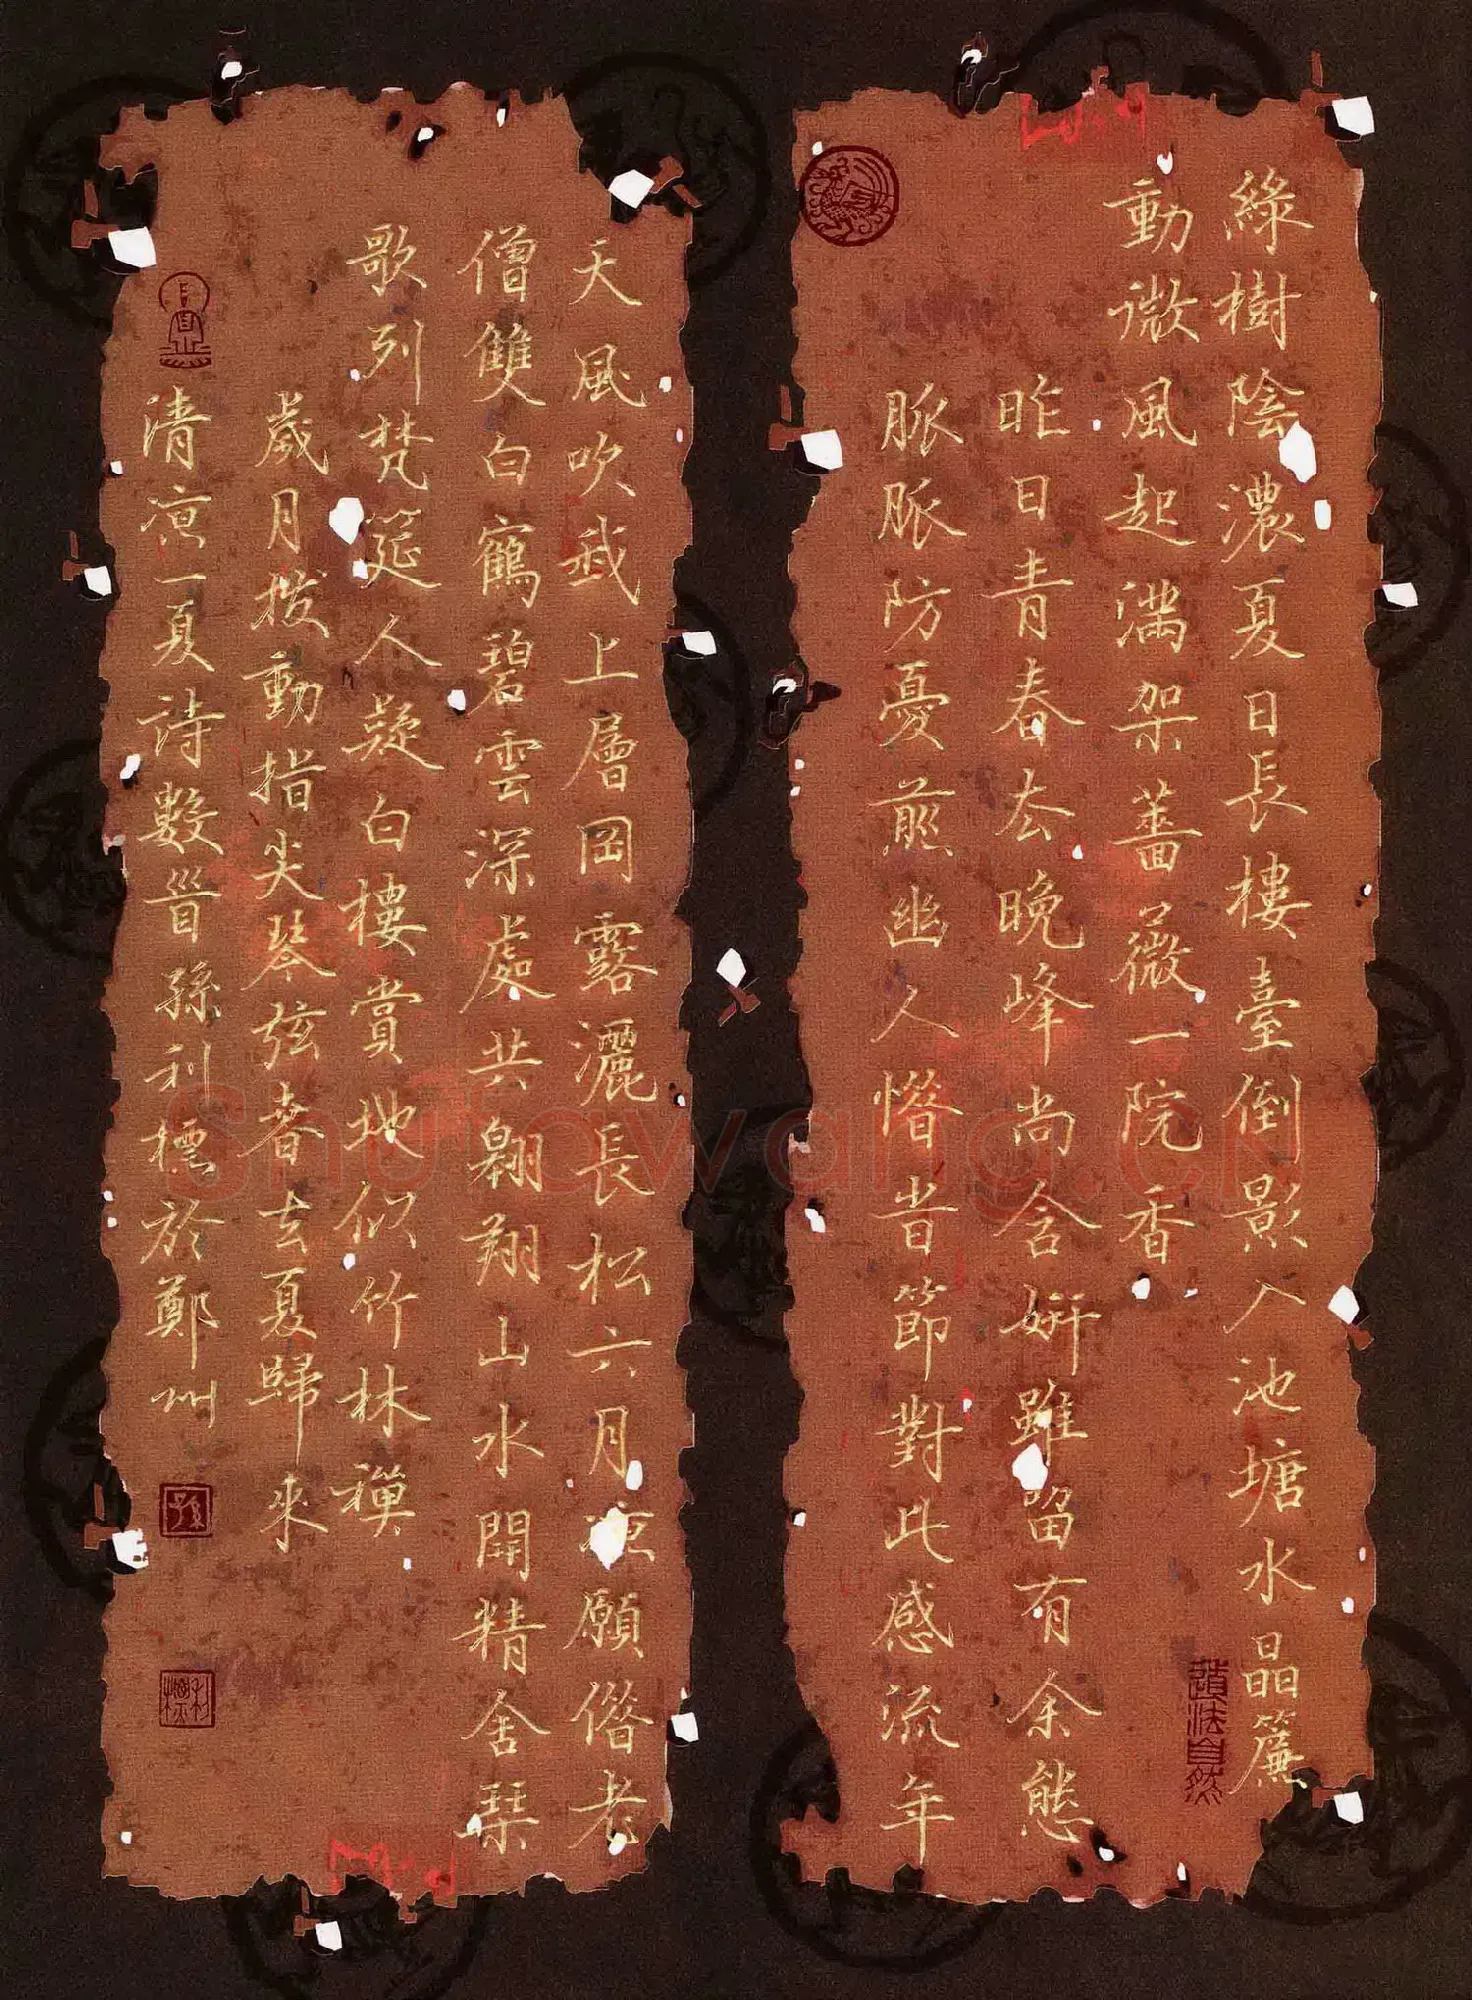 綠樹陰濃夏日長樓臺倒影入池塘水晶簾
動微風起滿架薔薇一院香
昨日青春去晚峰尚含妍雖留有余態
脈脈防憂煎幽人惜旹節對此感流年
道法自然
天風吹我上層岡露灑長松六月凉願偕老
僧雙白鶴碧雲深處共翱翔山水開精舍琴
歌列梵筵人疑白樓賞地似竹林禪
歲月撥動指尖琴弦春去夏歸來
清凉一夏詩數首孫利標於鄭州
孫
利標
Shufawang.cn